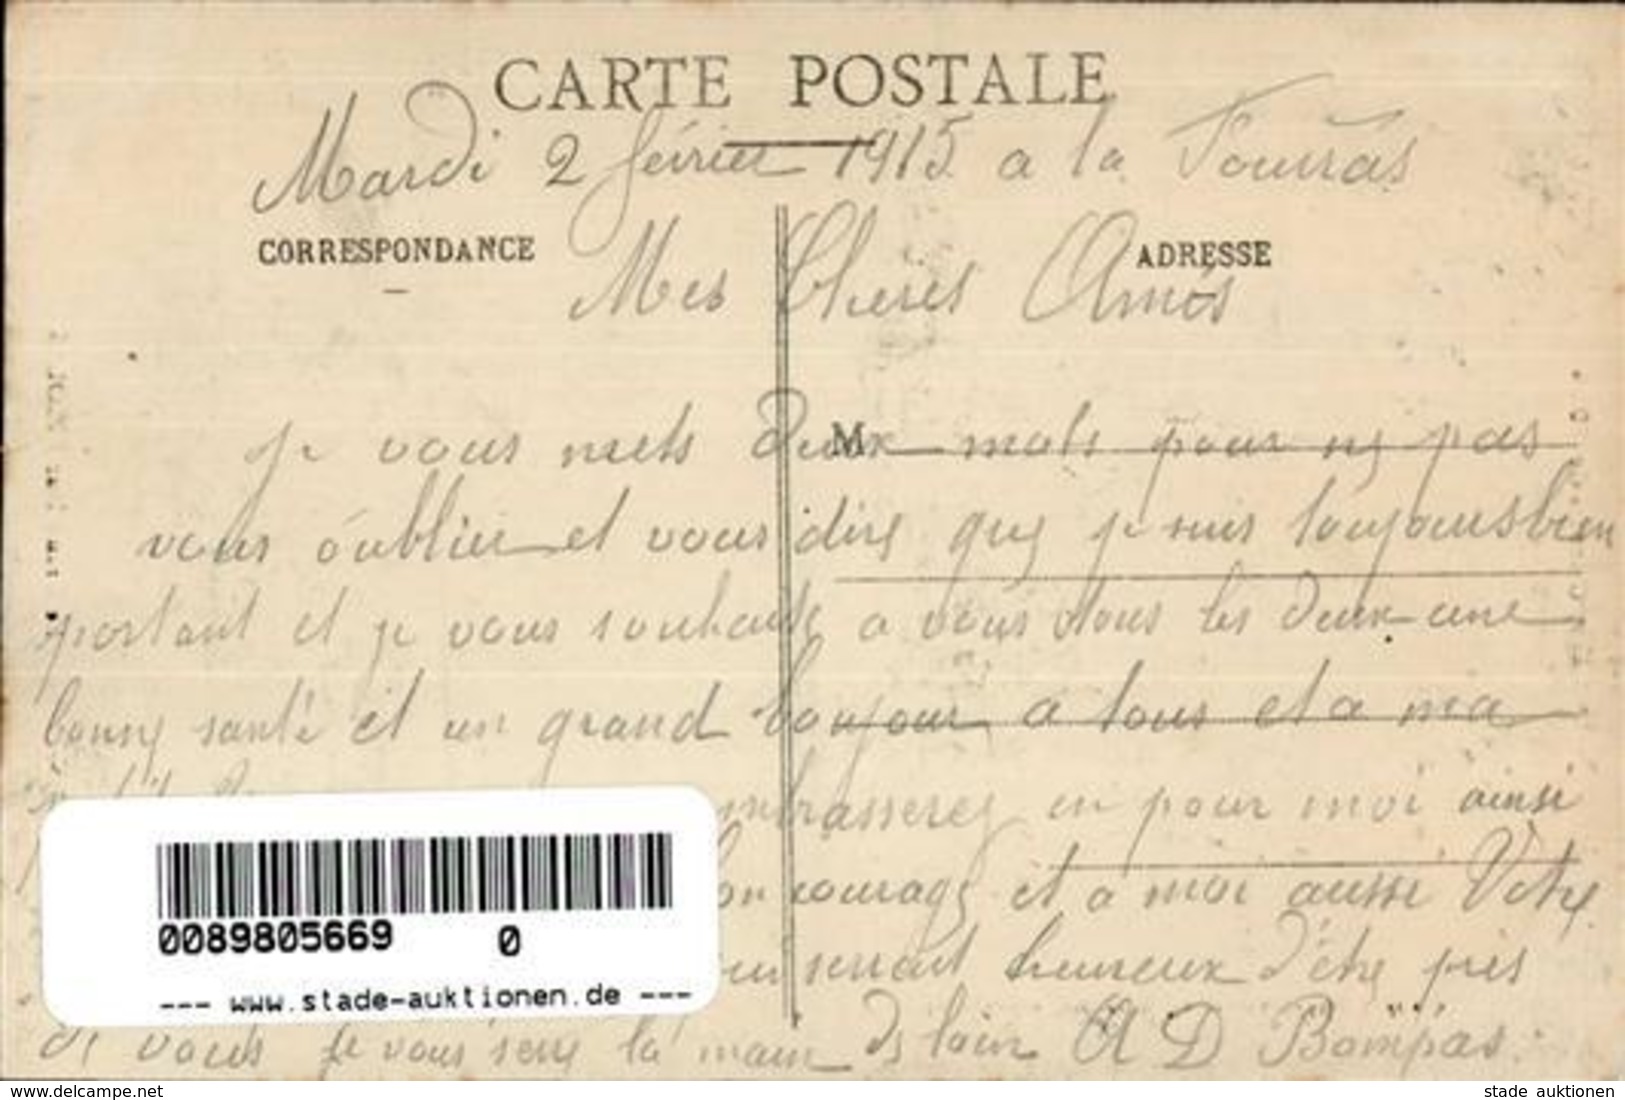 CARTE POSTALE
Mardi 2 février 1915 a la
CORRESPONDANCE
ADRESSE
Mes Cheres Amis
M
je vous mets deux mots pour ne pas
vous oublier et vous dire que je suis toujours bien
portant et je vous souhaite a vous tous les deux une
bonne santé et un grand bonjour a tous et a ma
embrasserez en pour moi ainsi
bon courage et a moi aussi Votre
serrait heureux d'être près
de vous je vous serre la main de loin A D Bompas
0089805669 0
--- www.stade-auktionen.de ---
delcampe.net
stade auktionen